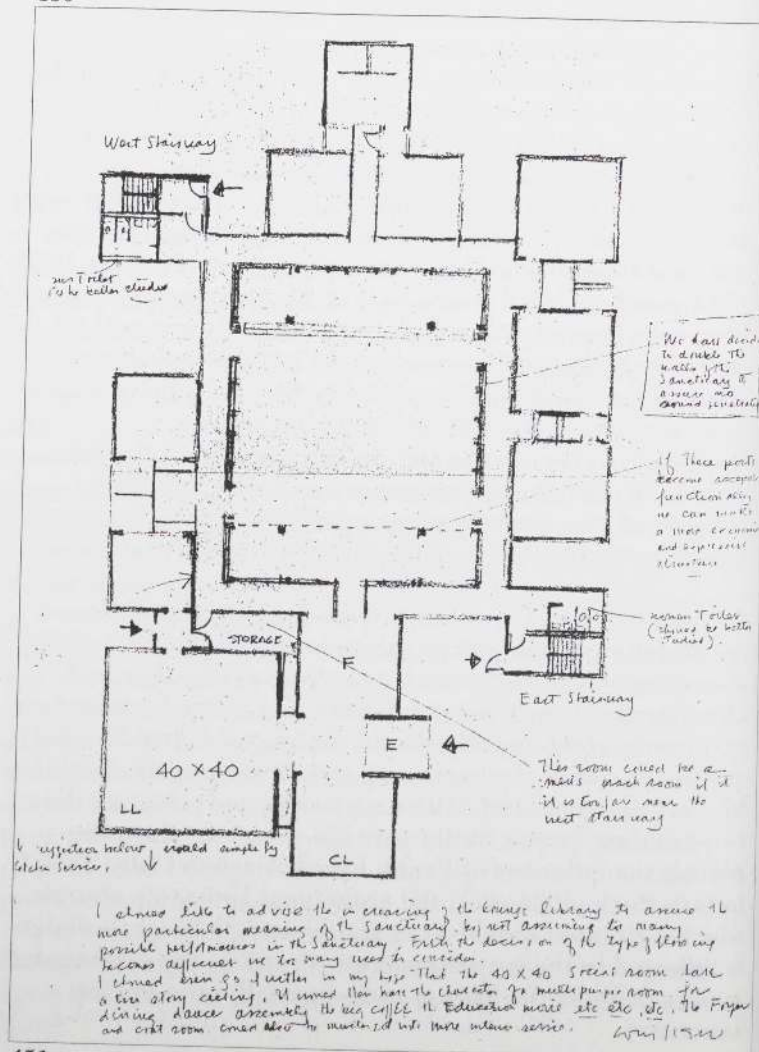 West Stairway
men Toilet
to be better studied
We have decided
to double the
walls of the
Sanctuary to
assure no
sound penetration
If These ports
become
functionally
we can make
a more
and
structure
women Toilet
(should be better
studied).
STORAGE
F
East Stairway
E
40 X 40
LL
CL
This room could be a
men's room if it
it is too far near the
west stairway
below, would simplify
Kitchen Service.
I should like to advise the increasing of the lounge library to assure the
more particular meaning of the Sanctuary by not assuming to many
possible performances in the Sanctuary. Even the decision of the type of flooring
becomes difficult we too many uses to consider.
I should even go further in my hope That the 40 X 40 Social room have
a two story ceiling. It would then have the character of a multi purpose room for
dining dance assembly the big coffee the Education movie etc etc, etc, The Foyer
and coat room could also be into more intense service.